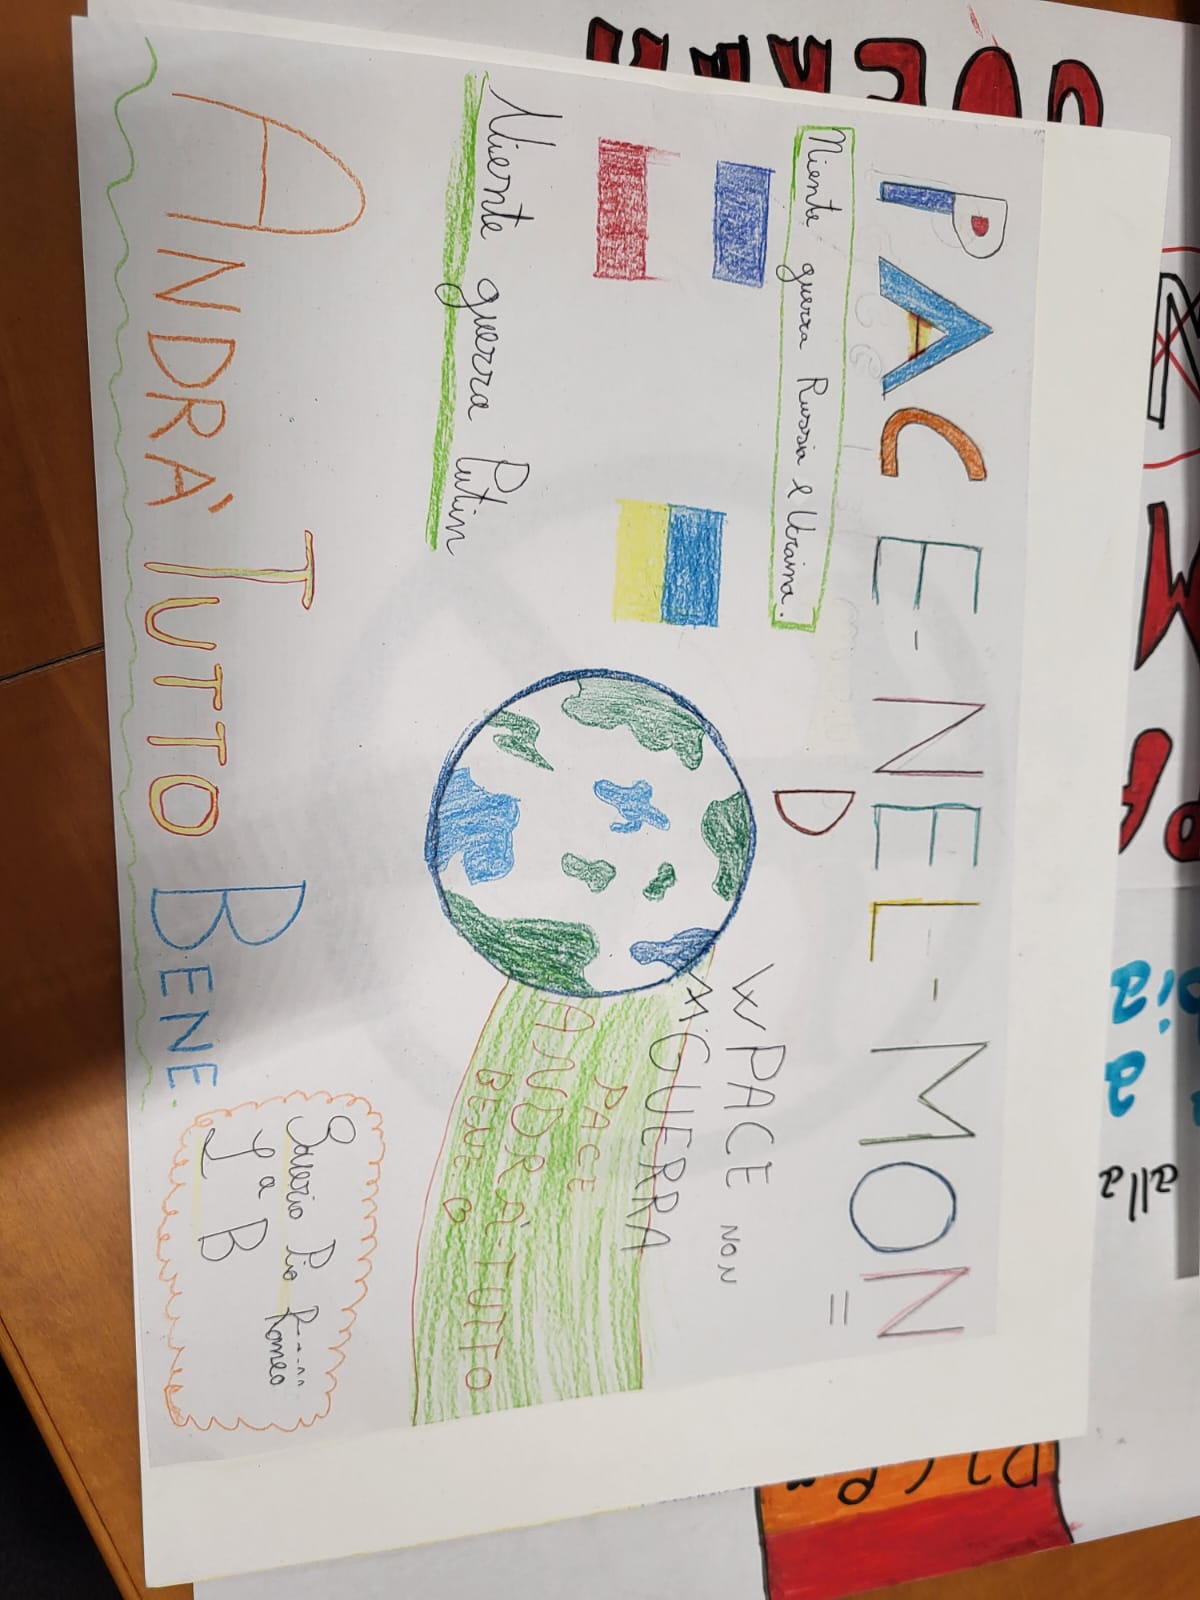 PACE-NEL-MON=
D
Niente guerra Russia e Ucraina.
Niente guerra Putin
W PACE NON
GUERRA
PACE
ANDRÀ-TUTTO
BENE
ANDRÀ TUTTO BENE.
Saverio Pio Romeo
1ª B
alla